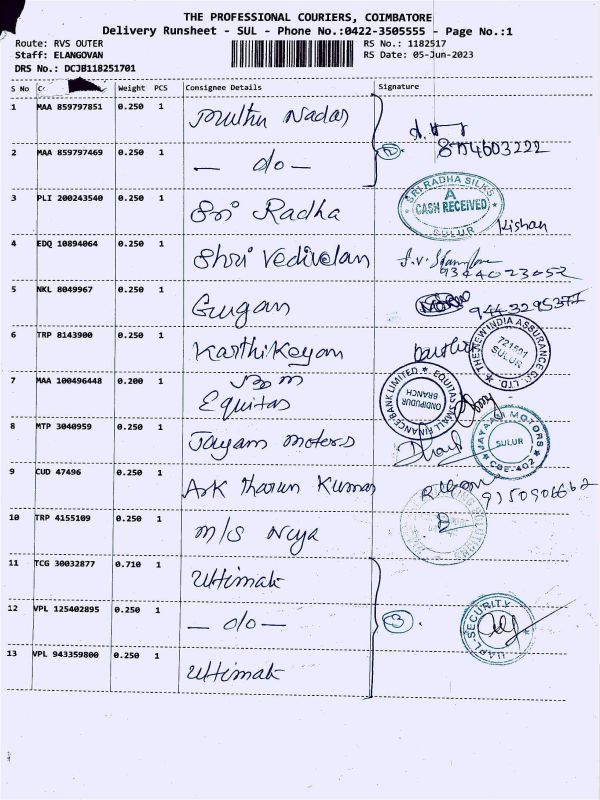 THE PROFESSIONAL COURIERS, COIMBATORE
Delivery Runsheet - SUL - Phone No.:0422-3505555 - Page No.:1
Route: RVS OUTER
RS No.: 1182517
Staff: ELANGOVAN
RS Date: 05-Jun-2023
DRS No.: DCJB118251701
S No Weight PCS Consignee Details Signature
1 MAA 859797851 0.250 1 Muthu Nadar
2 MAA 859797469 0.250 1 — do — 2
3 PLI 200243540 0.250 1 Sri Radha
SRI RADHA SILKS A CASH RECEIVED SULUR Kishan
4 EDQ 10894064 0.250 1 Shri Vedivelan
9344023052
5 NKL 8049967 0.250 1 Gugan
6 TRP 8143900 0.250 1 Karthikeyan
THE NEW INDIA ASSURANCE CO. LTD. 721501 SULUR
7 MAA 100496448 0.200 1 Equitas
EQUITAS SMALL FINANCE BANK LIMITED ONDIPUDUR BRANCH
8 MTP 3040959 0.250 1 Jayam motors
JAYAAM MOTORS SULUR CBE-402
9 CUD 47496 0.250 1 Ark Tharun Kumar
9150906662
10 TRP 4155109 0.250 1 M/S
11 TCG 30032877 0.710 1 Ultimate
12 VPL 125402895 0.250 1 — do — 3
UAPL-SECURITY
13 VPL 943359800 0.250 1 Ultimate